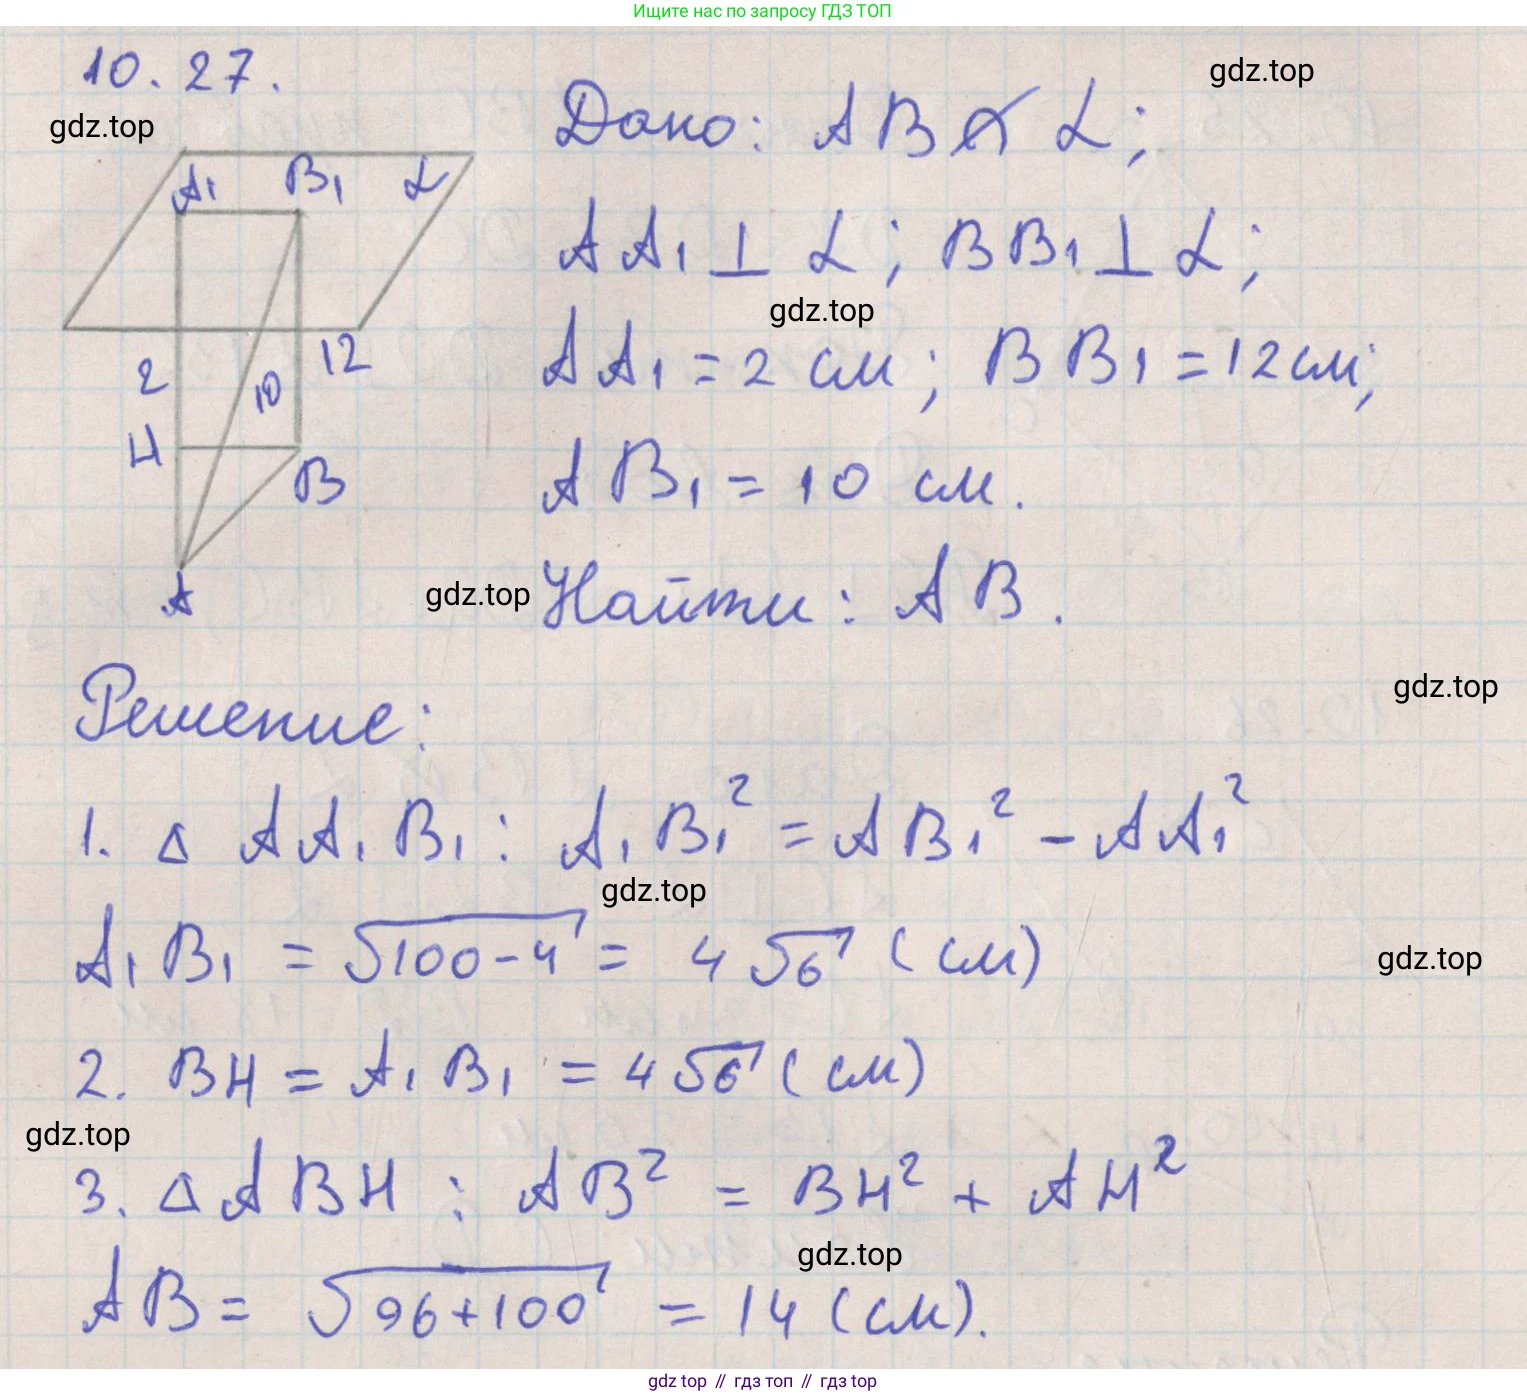 Ищите нас по запросу ГДЗ ТОП
10.27.
gdz.top
gdz.top
A₁ B₁ α
2 10 12
H B
A
Дано: AB ⊄ α;
AA₁ ⊥ α; BB₁ ⊥ α;
gdz.top
AA₁ = 2 см; BB₁ = 12 см;
AB₁ = 10 см.
gdz.top
Найти: AB.
gdz.top
Решение:
1. △ AA₁B₁: A₁B₁² = AB₁² - AA₁²
gdz.top
A₁B₁ = √100-4 = 4√6 (см)
gdz.top
2. BH = A₁B₁ = 4√6 (см)
gdz.top
3. △ ABH: AB² = BH² + AH²
gdz.top
AB = √96+100 = 14 (см).
gdz top // гдз топ // gdz top